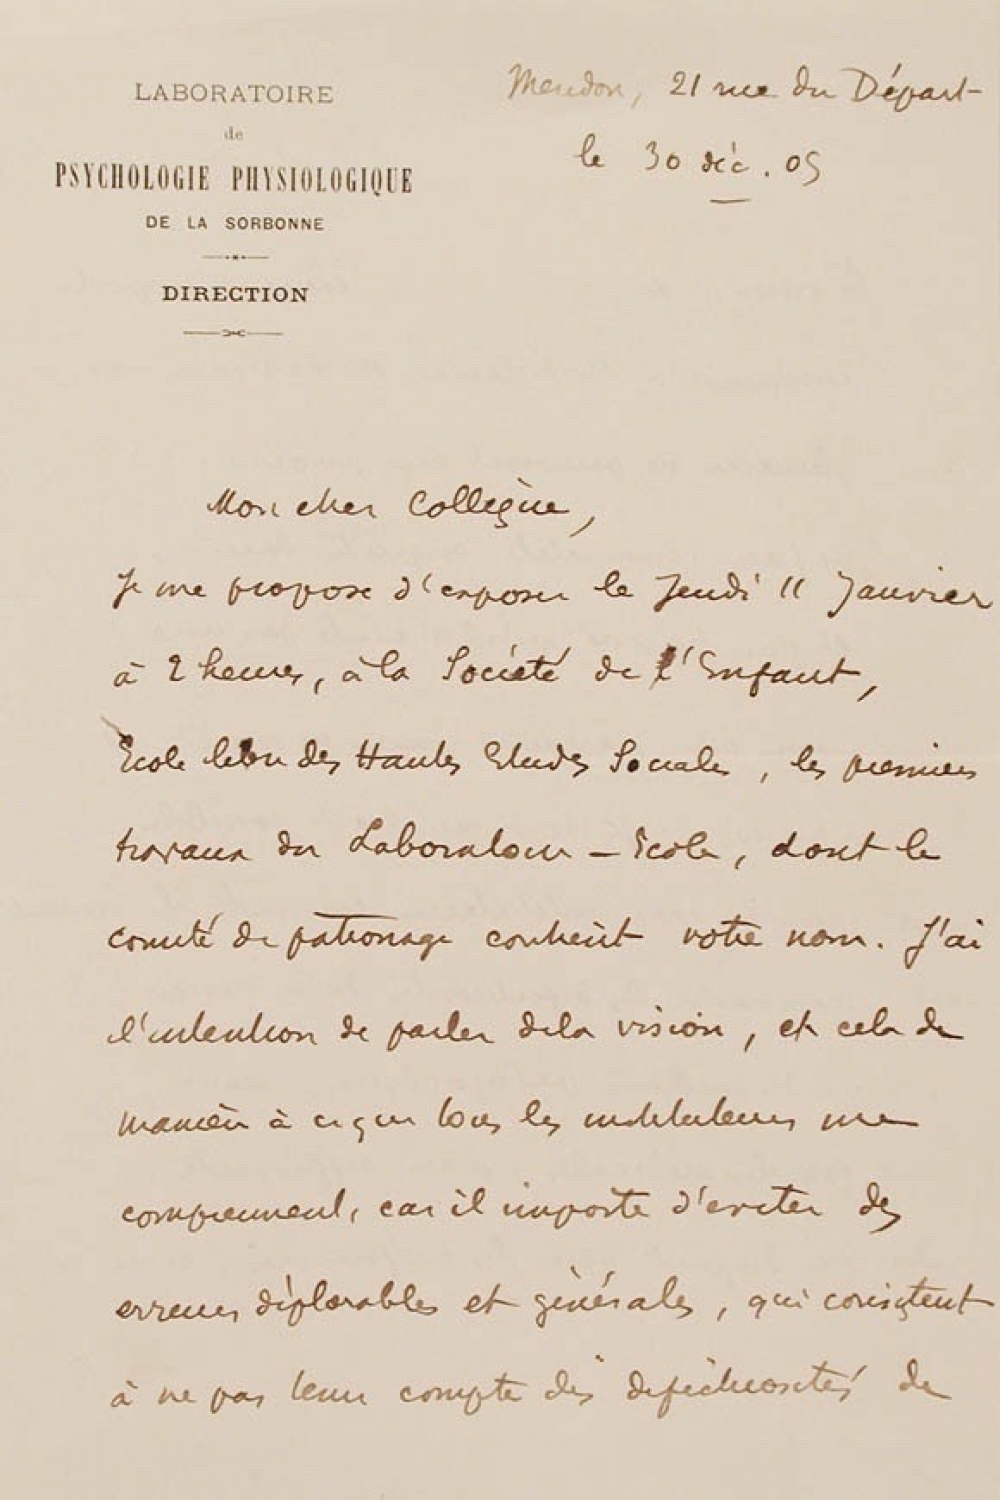 LABORATOIRE
de
PSYCHOLOGIE PHYSIOLOGIQUE
DE LA SORBONNE
DIRECTION
Meudon, 21 rue du Départ
le 30 déc. 05
Mon cher Collègue,
Je me propose d'exposer le Jeudi 11 Janvier
à 2 heures, à la Société de l'Enfant,
Ecole des Hautes Etudes Sociales, les premiers
travaux du Laboratoire - Ecole, dont le
comité de patronage contient votre nom. J'ai
l'intention de parler de la vision, et cela de
manière à ce que tous les instituteurs me
comprennent, car il importe d'eviter des
erreurs déplorables et générales, qui consistent
à ne pas tenir compte des défectuosités de